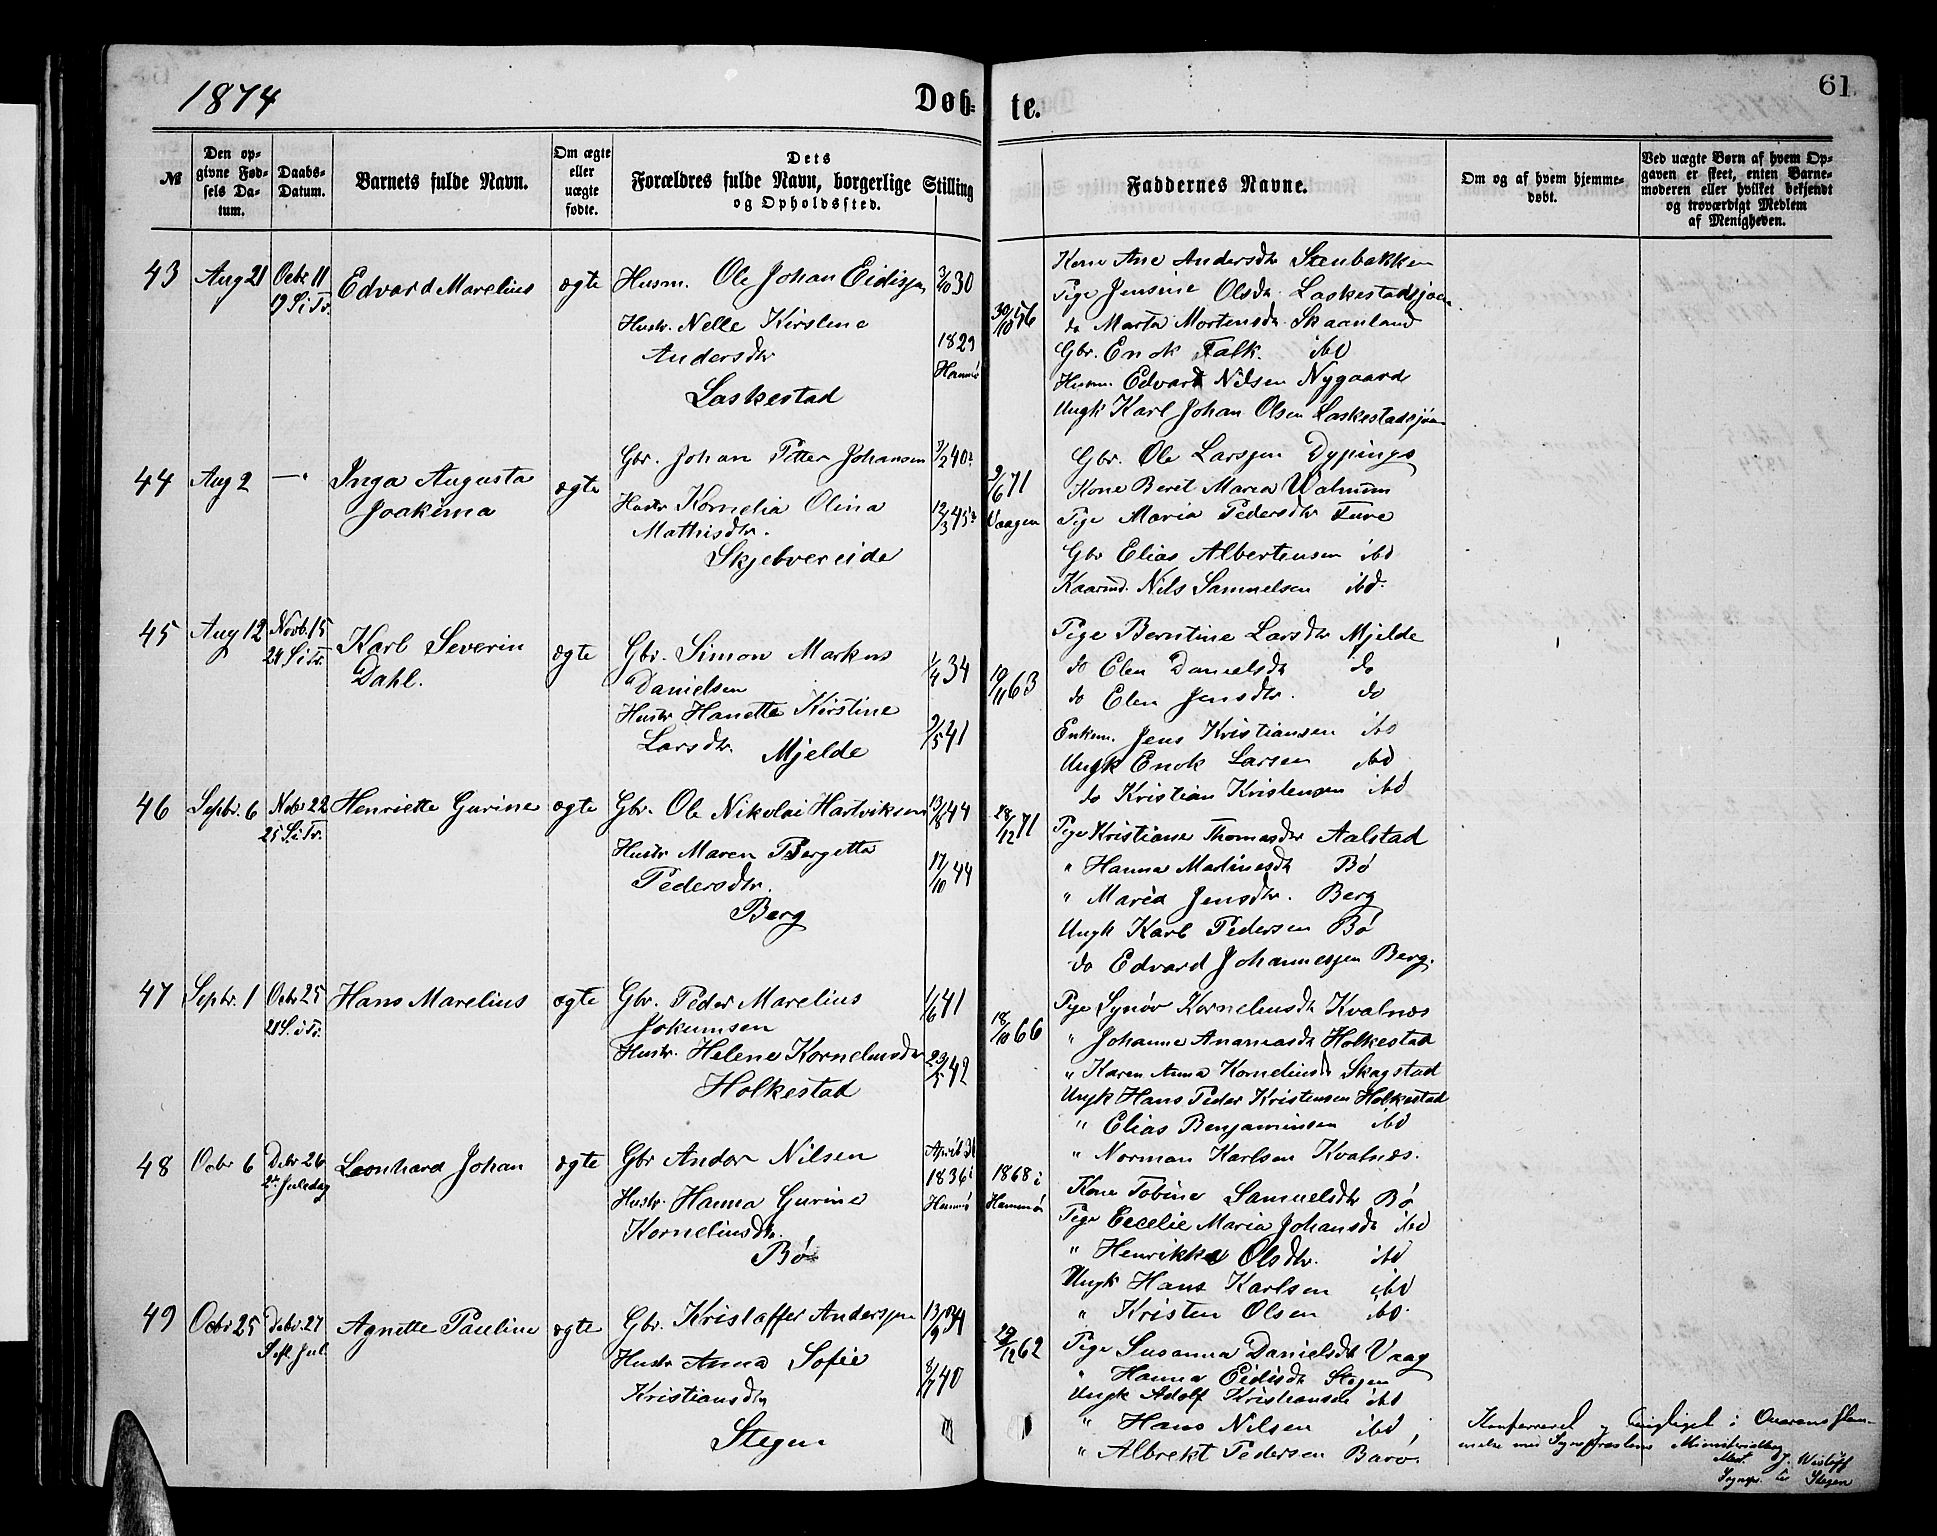 1874
Døb-
te.
61
№
Den op-
givne Fød-
sels Da-
tum.
Daabs-
Datum.
Barnets fulde Navn.
Om ægte
eller
uægte
fødte.
Dets
Forældres fulde Navn, borgerlige Stilling
og Opholdssted.
Faddernes Navne.
Om og af hvem hjemme-
døbt.
Ved uægte Børn af hvem Op-
gaven er skeet, enten Barne-
moderen eller hvilket bekjendt
og troværdigt Medlem
af Menigheden.
43 Aug 21 Octr. 11 Edvard Marelius ægte Husm. Ole Johan Eidissen 30
19 S. i Tr.
Hustr. Nelle Kirstine
Andersdtr 1829
Laskestad
30/10 56
Kone Ane Andersdtr Stenbakken
Pige Jensine Olsdtr. Laskestadsjøen
do Marta Mortensdtr. Skarnland
Gbr. Enok Falk. ibd
Husm. Edvard Nilsen Nygaard
Ungk Karl Johan Olsen Laskestadsjøen
44 Aug 2 —"— Inga Augusta ægte Gbr. Johan Petter Johansen 40
Joakima
Hustr Kornelia Olina 12/3 45
Mathisdtr.
Skjelvereide
9/6 71
Vaagen
Gbr. Ole Larssen Dypings
Kone Beret Maria Valnum
Pige Maria Pedersdtr Fure
Gbr Elias Albertensen ibd
Kaarmd. Nils Samuelsen ibd.
45 Aug 12 Novb. 15 Karl Severin ægte Gbr. Simon Markus 1/4 34
24 S. i Tr. Dahl.
Danielsen
Hustr Hanette Kirstine 9/5 41
Larsdtr. Mjelde
19/11 63
Pige Berntine Larsdtr Mjelde
do Elen Danielsdtr do
do Elen Jensdtr. do
Enkem. Jens Kristiansen ibd
Ungk Enok Larsen ibd
do Kristian Kristensen ibd
46 Septbr. 6 Nobr 22 Henriette Gurine ægte Gbr. Ole Nikolai Hartviksen 13/8 44
25 S. i Tr.
Hustr Maren Bergetta 17/10 44
Pedersdtr.
Berg
28/12 71
Pige Kristiane Thomasdtr Aalstad
" Hanna Martinesdtr Bø
" Maria Jensdtr. Berg
Ungk Karl Pedersen Bø
do Edvard Johannessen Berg.
47 Septbr. 1 Octr 25 Hans Marelius ægte Gbr. Peder Marelius 1/6 41
21 S. i Tr.
Jokumsen
Hustr. Helene Korneliusdtr 23/5 42
Holkestad
18/10 66
Pige Synøv Korneliusdtr Kvalnes
" Johanne Ananiasdtr Holkestad
" Karen Anna Korneliusdtr Skagstad
Ungk Hans Peder Kristensen Holkestad
" Elias Benjaminsen ibd
" Norman Karlsen Kvalnes.
48 Octr 6 Debr 26 Leonhard Johan ægte Gbr Andor Nilsen April
2den Juledag 1836 i
Hustr. Hanna Gurine Hammerø
Korneliusdtr.
Bø
1868 i
Hammerø
Kone Tobine Samuelsdtr Bø
Pige Cecelie Maria Johansdtr ibd
" Henrikka Olsdtr. ibd
Ungk Hans Karlsen ibd
" Kristen Olsen ibd.
49 Octr 25 Debr. 27 Agnette Pauline ægte Gbr. Kristaffer Anderssen 13/9 34
S. e. Jul.
Hustr Anna Sofie 8/7 40
Kristiansdtr
Stegen
29/12 62
Pige Susanna Danielsdtr Vaag
" Hanna Eidisdtr Stegen
Ungk Adolf Kristiansen ibd
" Hans Nilsen ibd,
" Albrekt Pedersen Barø.
Konfereret og rigtiget i Overensstem-
melse med Sognepræstens Ministerialbog
J. Wisløff
Sognepr. til Stegen